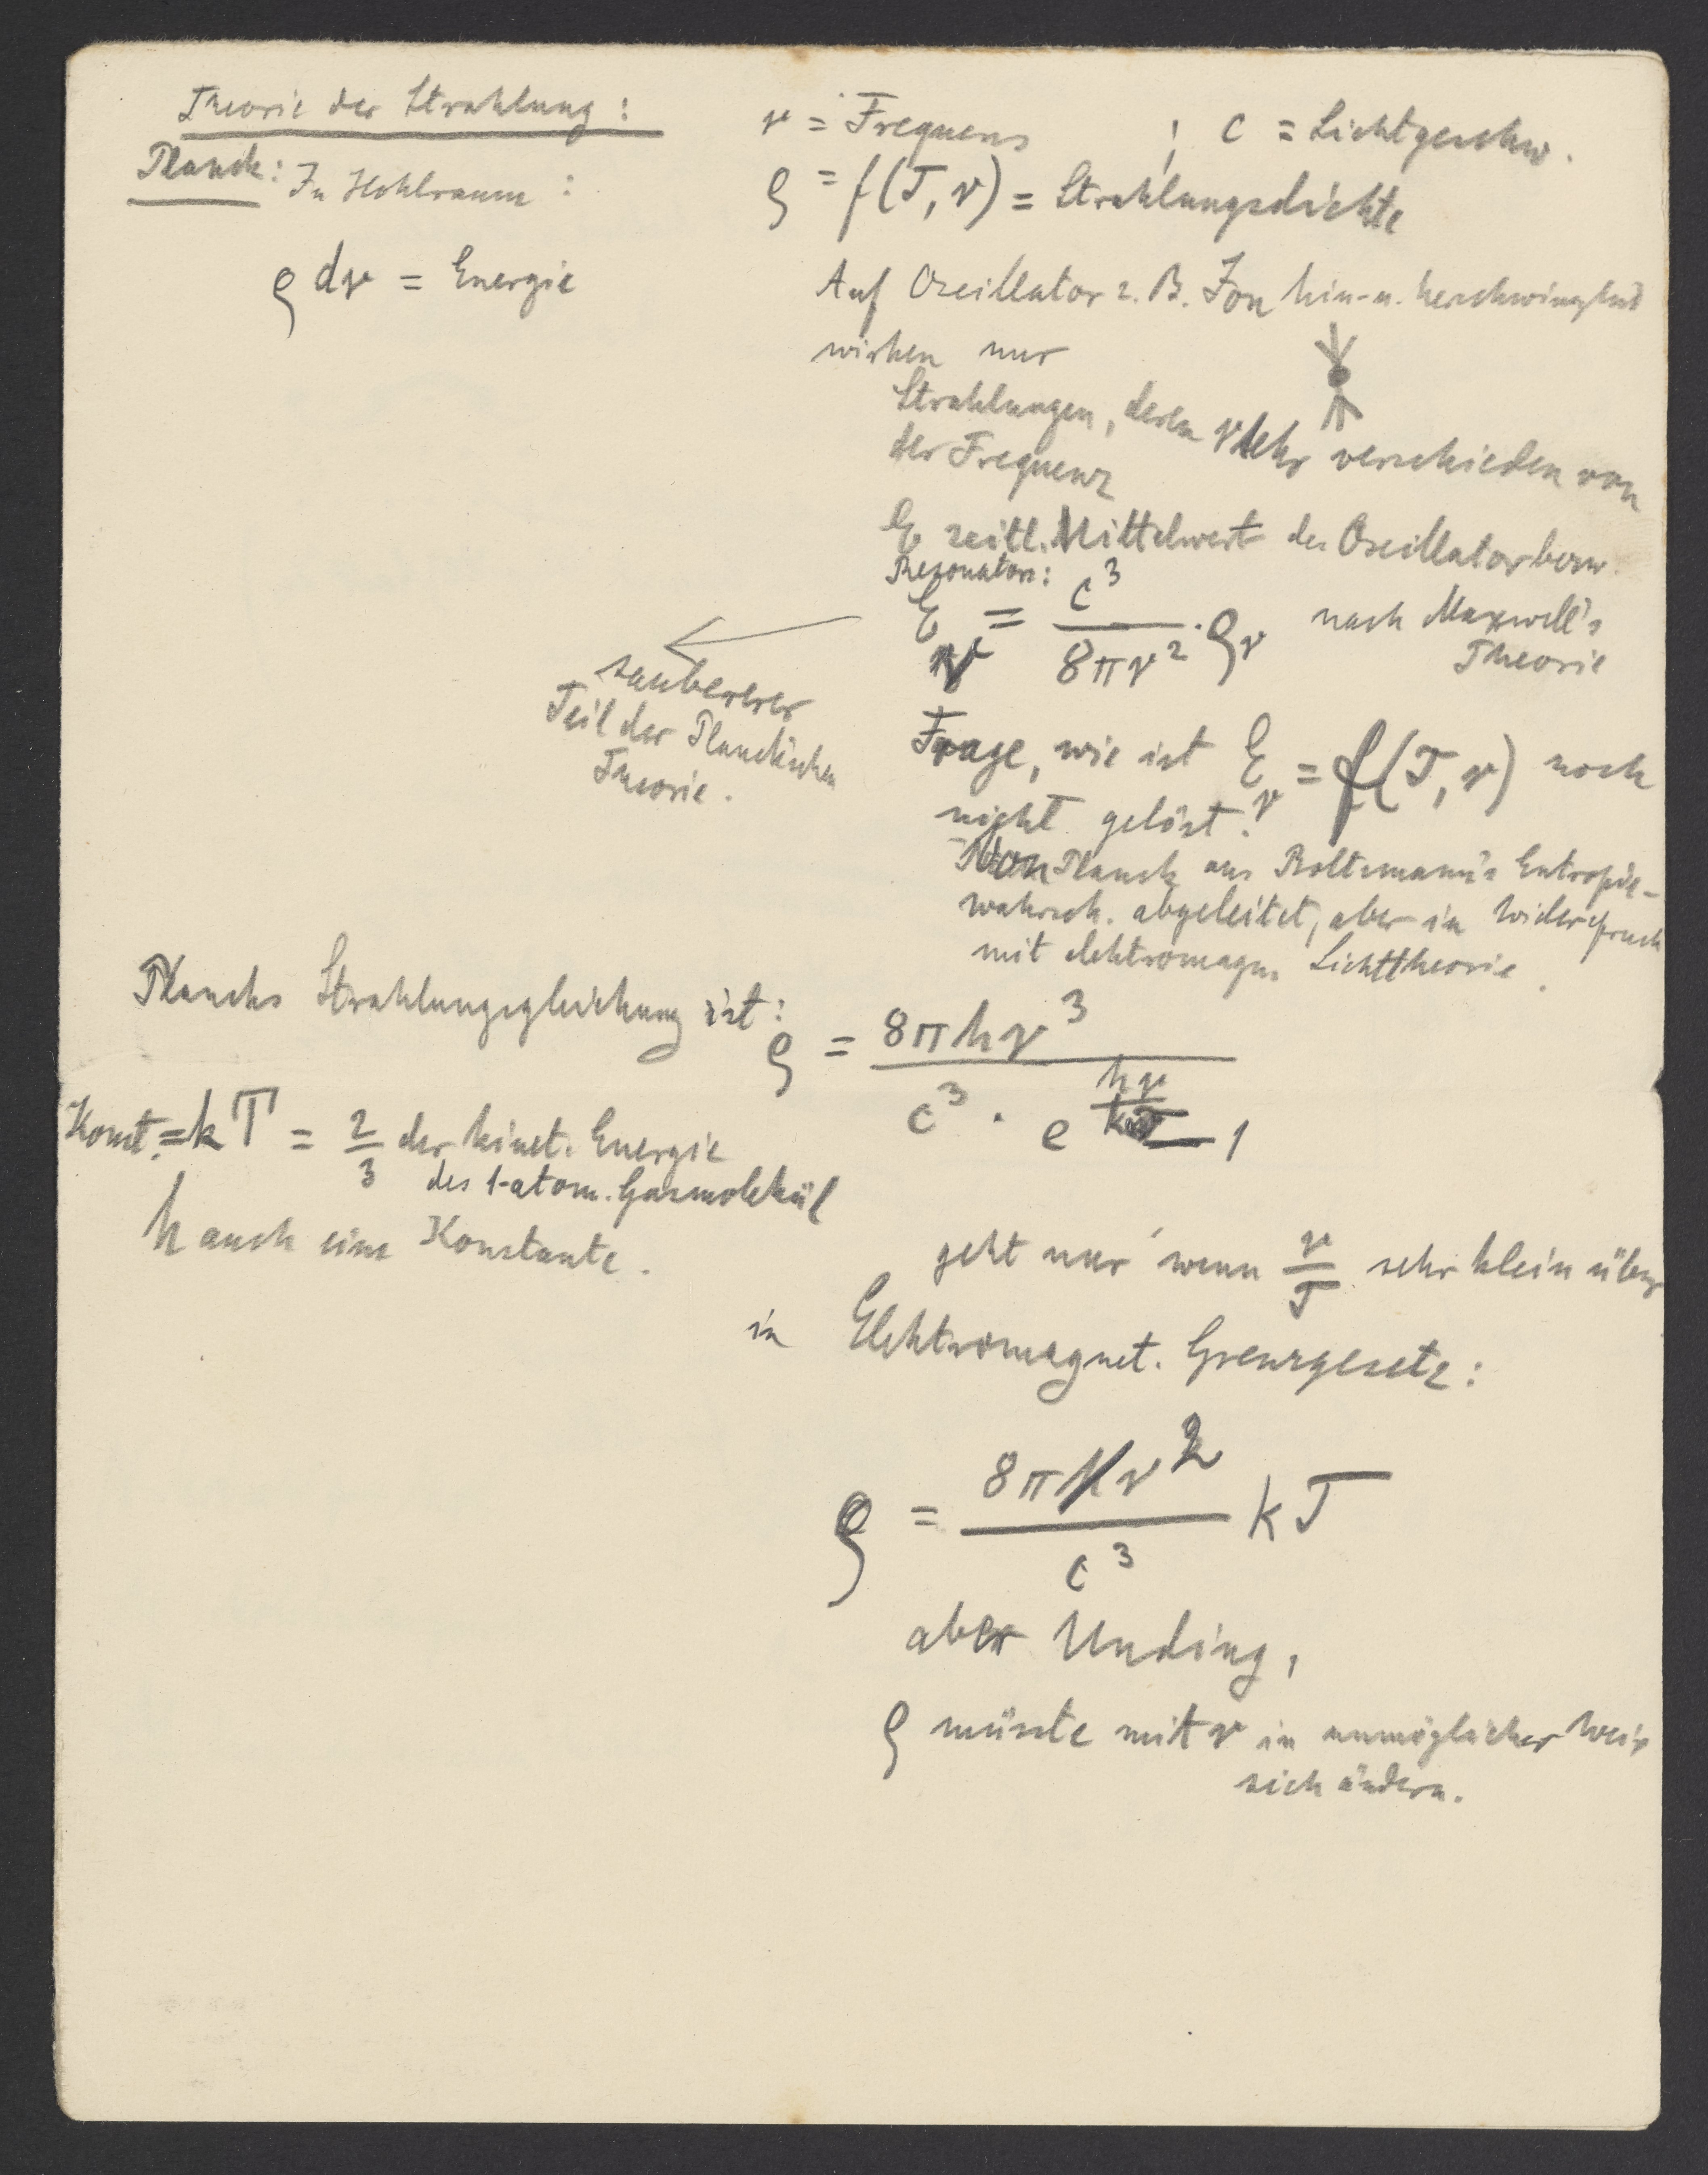 Theorie der Strahlung:
ν = Frequens ; c = Lichtgeschw.
Planck: In Hohlraum:
ρ = f(T, ν) = Strahlungsdichte
ρ dν = Energie
Auf Oscillator z. B. Ion hin- u. herschwingend
wirken nur
Strahlungen, deren ν sehr verschieden von
der Frequenz
E zeitl. Mittelwert des Oscillator bezw.
Resonators:
E_ν = c³ / 8πν² · ρ_ν nach Maxwell's
Theorie
sauberer
Teil der Planckschen
Theorie.
Frage, wie ist E_ν = f(T, ν) noch
nicht gelöst.
Von Planck aus Boltzmann's Entropie-
wahrsch. abgeleitet, aber in Widerspruch
mit elektromagn. Lichttheorie.
Plancks Strahlungsgleichung ist:
ρ = 8πhν³ / c³ · e^(hν/k) − 1
Konst. = kT = 2/3 der kinet. Energie
des 1-atom. Gasmolekül
h auch eine Konstante.
geht nur wenn ν/T sehr klein über
in Elektromagnet. Grenzgesetz:
ρ = 8πν² / c³ kT
aber Unding,
ρ müsste mit ν in unmöglicher Weise
sich ändern.